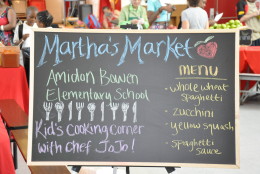 Martha's Market
Amidon Bowen
Elementary School
Kid's Cooking Corner
with Chef JoJo!
MENU
- whole wheat
spaghetti
- zucchini
- yellow squash
- spaghetti
sauce